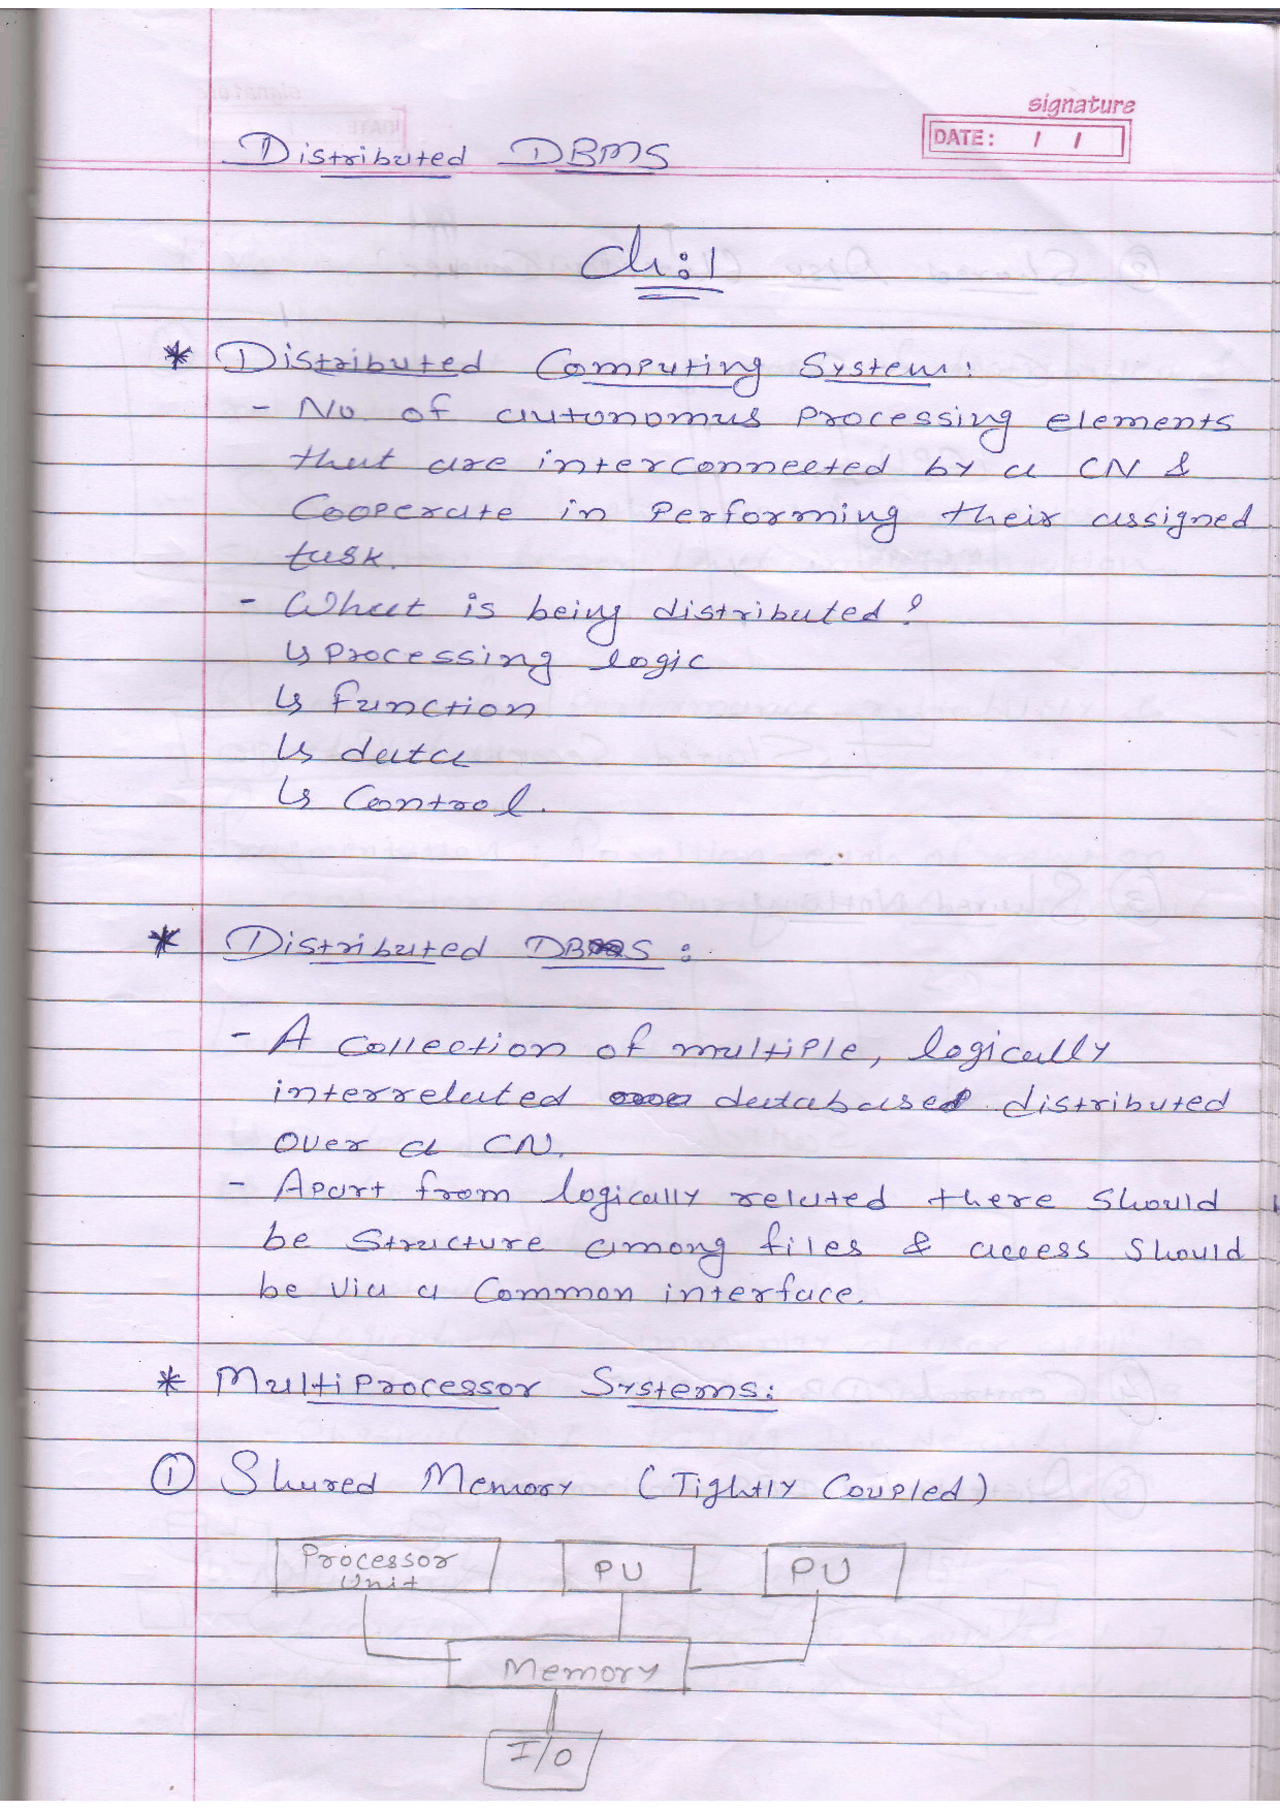 signature
DATE: / /
Distributed DBMS
Ch:1
* Distributed Computing System:
- No of autonomus processing elements
that are interconnected by a CN &
Cooperate in performing their assigned
task.
- What is being distributed?
↳ processing logic
↳ function
↳ data
↳ Control.
* Distributed DBS:
- A collection of multiple, logically
interrelated databases distributed
over a CN.
- Apart from logically related there should
be structure among files & access should
be via a common interface.
* Multiprocessor Systems:
① Shared Memory (Tightly Coupled)
Processor Unit
PU
PU
Memory
I/O